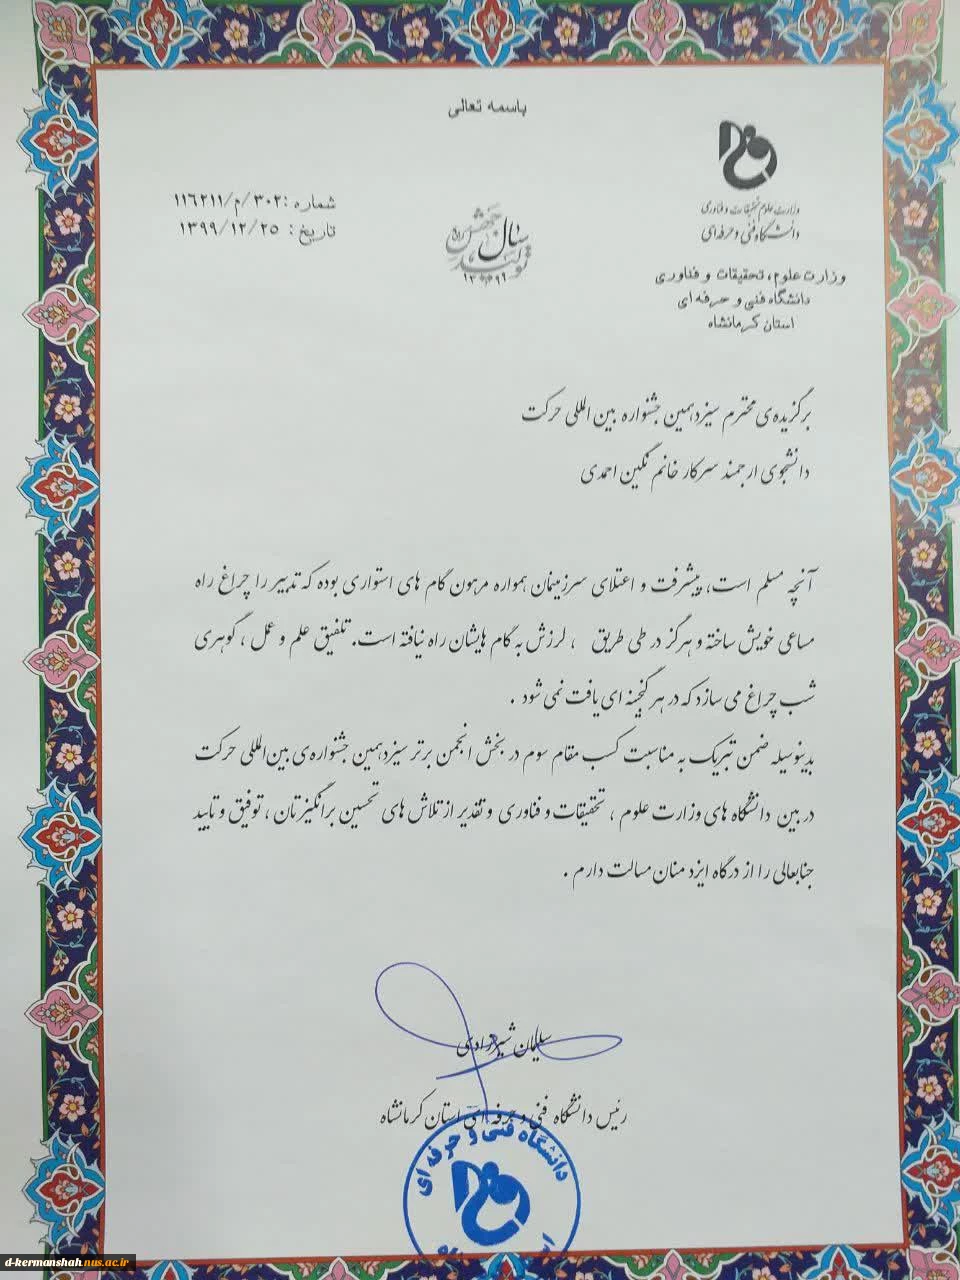 باسمه تعالی
وزارت علوم تحقیقات و فناوری
دانشگاه فنی و حرفه‌ای
وزارت علوم، تحقیقات و فناوری
دانشگاه فنی و حرفه ای
استان کرمانشاه
شماره :۳۰۲/م/۱۱۶۲۱۱
تاریخ: ۱۳۹۹/۱۲/۲۵
سال جهش تولید
۱۳۹۹
برگزیده‌ی محترم سیزدهمین جشنواره بین المللی حرکت
دانشجوی ارجمند سرکار خانم نگین احمدی
آنچه مسلم است، پیشرفت و اعتلای سرزمینمان همواره مرهون گام های استواری بوده که تدبیر را چراغ راه
مساعی خویش ساخته و هرگز در طی طریق ، لرزش به گام هایشان راه نیافته است. تلفیق علم و عمل ، گوهری
شب چراغ می سازد که در هر گنجینه ای یافت نمی شود .
بدینوسیله ضمن تبریک به مناسبت کسب مقام سوم در بخش انجمن برتر سیزدهمین جشنواره‌ی بین‌المللی حرکت
در بین دانشگاه های وزارت علوم ، تحقیقات و فناوری و تقدیر از تلاش های تحسین برانگیزتان ، توفیق و تایید
جنابعالی را از درگاه ایزد منان مسالت دارم .
سلیمان شیرزادی
رئیس دانشگاه فنی و حرفه ای استان کرمانشاه
دانشگاه فنی و حرفه ای
d-kermanshah.nus.ac.ir